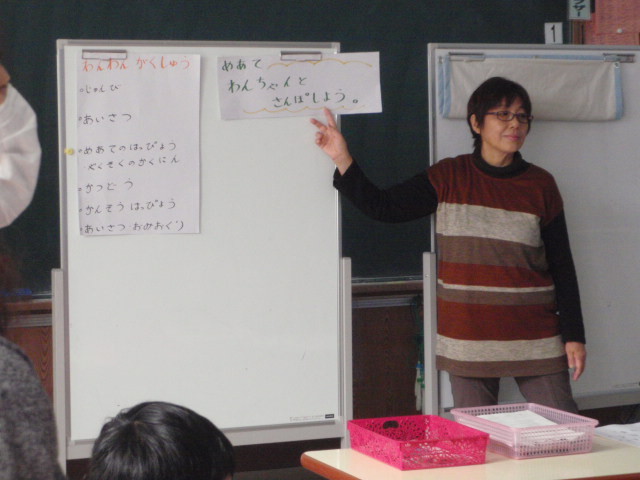 わんわん がくしゅう
・じゅんび
・あいさつ
・めあてのはっぴょう
やくそくのかくにん
・かつどう
・かんそう はっぴょう
・あいさつ おみおくり
めあて
わんちゃんと
さんぽしよう。
1